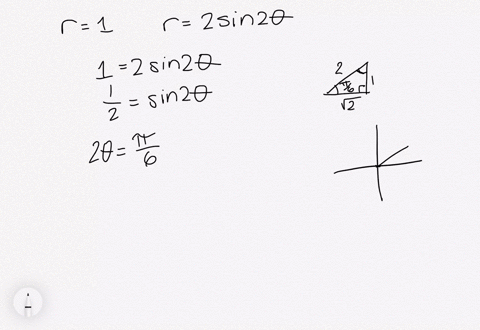 r = 1    r = 2sin2θ
1 = 2sin2θ
1/2 = sin2θ
2θ = π/6
2
π/6
1
√2